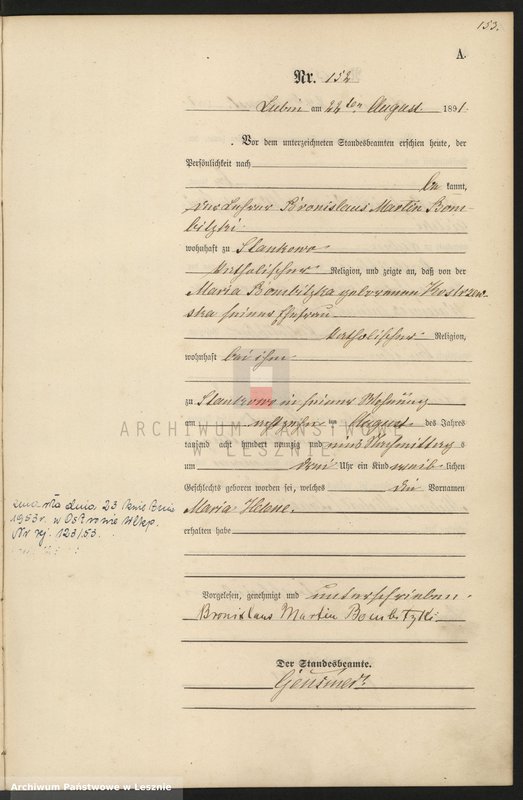 153.
A.
Nr. 152
Lubin am 22ten August 1891.
Vor dem unterzeichneten Standesbeamten erschien heute, der
Persönlichkeit nach
be kannt,
der Lehrer Bronislaus Martin Bom-
bitzki
wohnhaft zu Stankowo
katholischer Religion, und zeigte an, daß von der
Maria Bombitzka geborenen Kostrzew-
ska seiner Ehefrau
katholischer Religion,
wohnhaft bei ihm
zu Stankowo in seiner Wohnung
am achtzehn ten August des Jahres
tausend acht hundert neunzig und eins Nachmittags
um drei Uhr ein Kind weib lichen
Geschlechts geboren worden sei, welches die Vornamen
Maria Helene.
erhalten habe
Vorgelesen, genehmigt und unterschrieben.
Bronislaus Martin Bombitzki
Der Standesbeamte.
zmarła dnia 23
1953 r. w Ostrowie Wlkp.
Nr rej. 123/53.
ARCHIWUM PAŃSTWOWE
W LESZNIE
Archiwum Państwowe w Lesznie